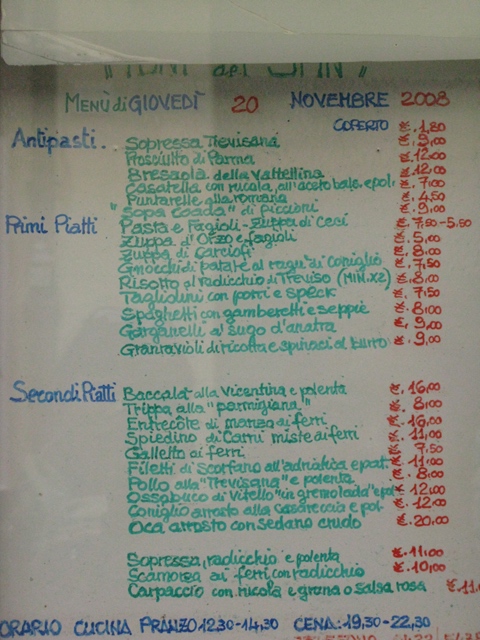 "MENÙ del
MENÙ di GIOVEDÌ 20 NOVEMBRE 2008
COPERTO €. 1,80
Antipasti. Sopressa Trevisana €. 9,00
Prosciutto di Parma €. 12,00
Bresaola della Valtellina €. 12,00
Casatella con rucola all'aceto bals. e pol. €. 7,00
Puntarelle alla romana €. 4,50
"Sopa Coada" di piccioni €. 9,00
Primi Piatti Pasta e Fagioli - Zuppa di Ceci €. 7,50-5,50
Zuppa di Orzo e fagioli €. 5,00
Zuppa di Carciofi €. 8,00
Gnocchi di patate al ragu' di coniglio €. 7,50
Risotto al radicchio di Treviso (min. x2) €. 8,00
Tagliolini con porri e speck €. 7,50
Spaghetti con gamberetti e seppie €. 8,00
Garganelli al sugo d'anatra €. 9,00
Gran ravioli di ricotta e spinaci al burro €. 9,00
Secondi Piatti Baccalà alla Vicentina e polenta €. 16,00
Trippa alla "parmigiana" €. 8,00
Entrecote di manzo ai ferri €. 16,00
Spiedino di Carni miste ai ferri €. 11,00
Galletto ai ferri €. 9,50
Filetti di Scorfano all'adriatica e pol. €. 11,00
Pollo alla "Trevisana" e polenta €. 8,00
Ossobuco di Vitello "in gremolada" e pol €. 12,00
Coniglio arrosto alla e pol. €. 12,00
Oca arrosto con sedano crudo €. 20,00
Sopressa, radicchio e polenta €. 11,00
Scamorza ai ferri con radicchio €. 10,00
Carpaccio con rucola e grana o salsa rosa €. 11,
ORARIO CUCINA PRANZO 12,30-14,30 CENA: 19,30-22,30